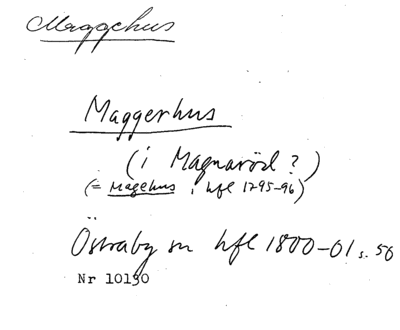 Maggehus
Maggerhus
(i Magnaröd?)
(= Magehus i hfl 1795-96)
Östraby sn hfl 1800-01 s. 56
Nr 10190